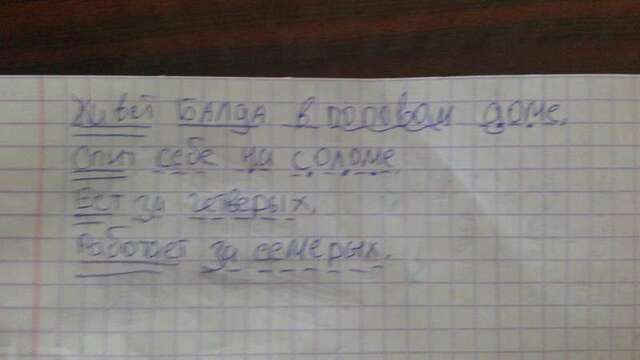 Живёт БАЛДА в поповом доме,
Спит себе на соломе,
Ест за четверых,
Работает за семерых.